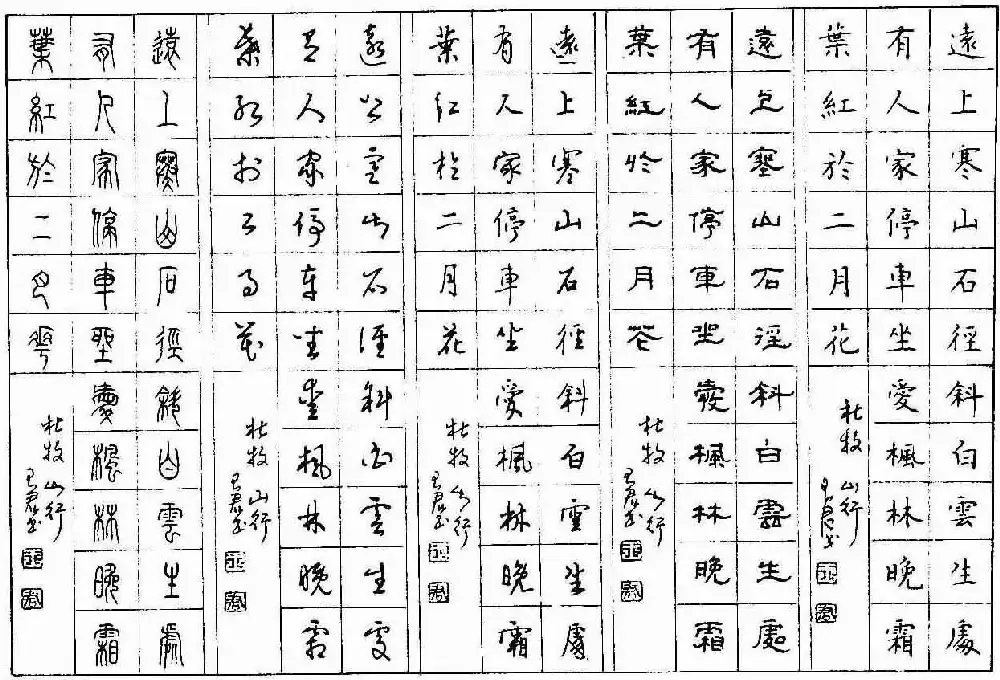 遠上寒山石徑斜白雲生處
有人家停車坐愛楓林晚霜
葉紅於二月花
杜牧 山行
遠上寒山石徑斜白雲生處
有人家停車坐愛楓林晚霜
葉紅於二月花
杜牧 山行
遠上寒山石徑斜白雲生處
有人家停車坐愛楓林晚霜
葉紅於二月花
杜牧 山行
遠上寒山石徑斜白雲生處
有人家停車坐愛楓林晚霜
葉紅於二月花
杜牧 山行
遠上寒山石徑斜白雲生處
有人家停車坐愛楓林晚霜
葉紅於二月花
杜牧 山行